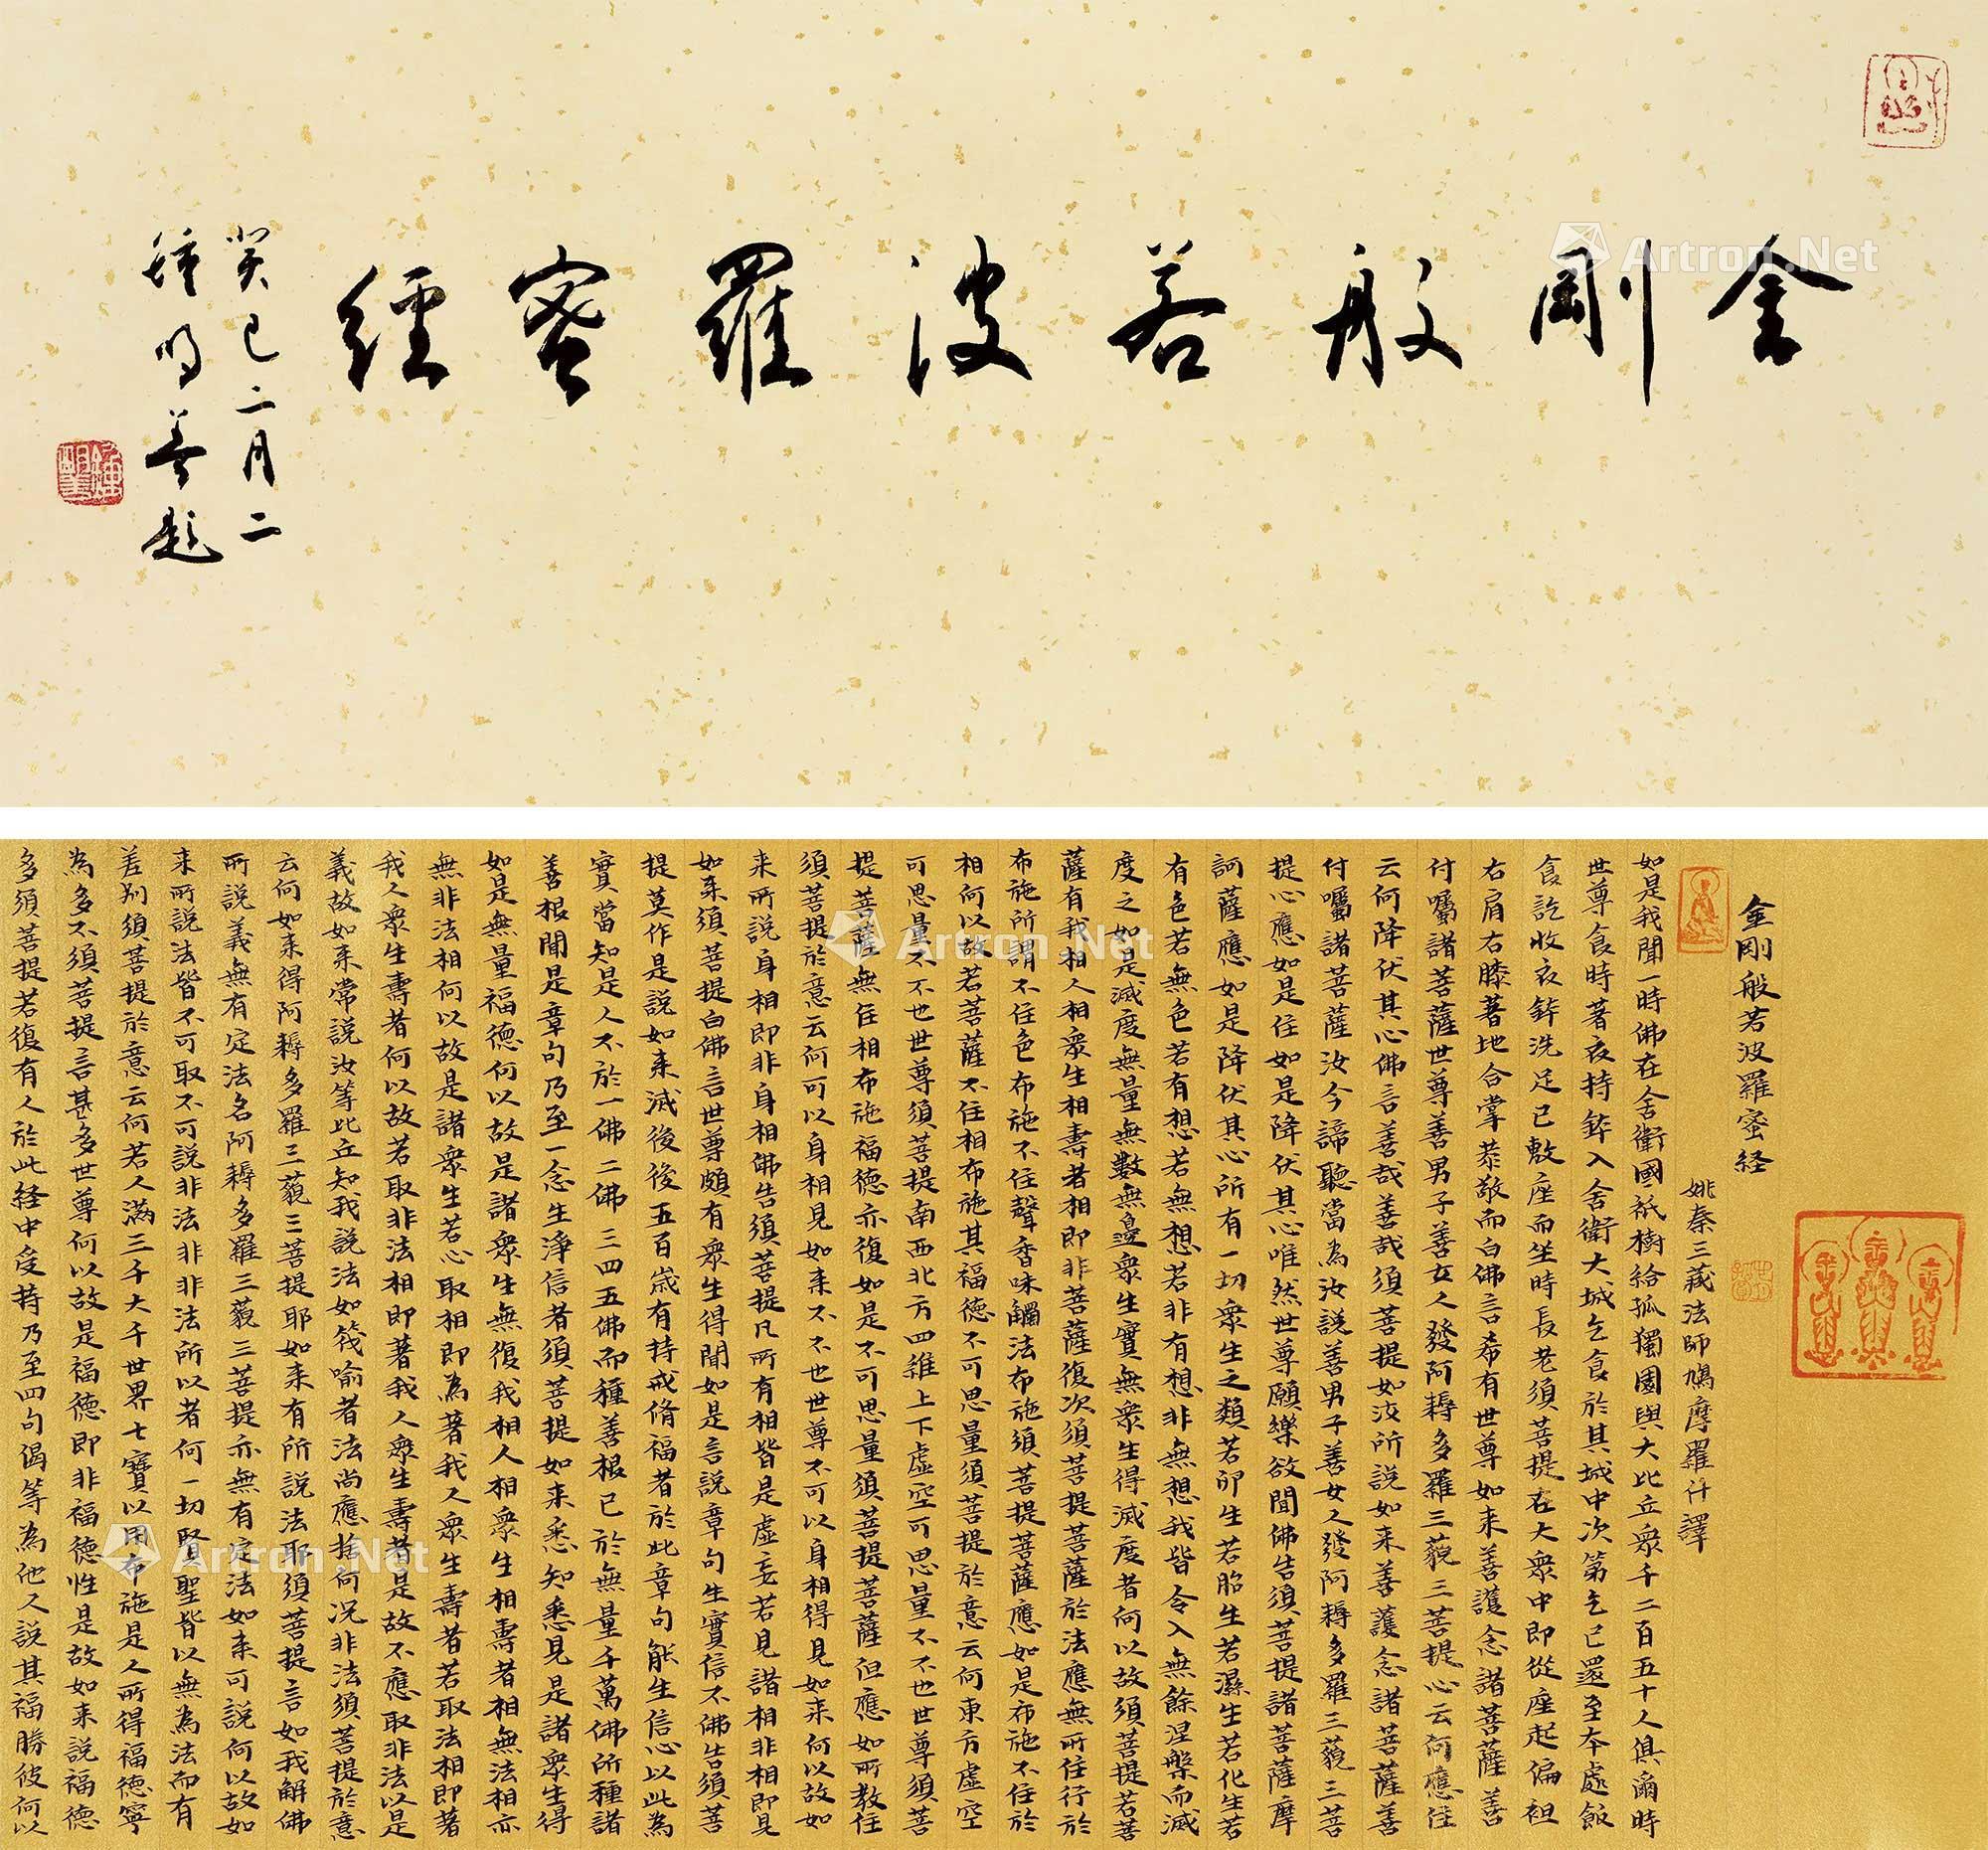 金剛般若波羅蜜經
癸巳二月二
鍾明善題
金剛般若波羅蜜経
姚秦三藏法師鳩摩羅什譯
如是我聞一時佛在舍衛國祇樹給孤獨園與大比丘衆千二百五十人俱爾時
世尊食時著衣持鉢入舍衛大城乞食於其城中次第乞已還至本處飯
食訖收衣鉢洗足已敷座而坐時長老須菩提在大衆中即從座起偏袒
右肩右膝著地合掌恭敬而白佛言希有世尊如来善護念諸菩薩善
付囑諸菩薩世尊善男子善女人發阿耨多羅三藐三菩提心云何應住
云何降伏其心佛言善哉善哉須菩提如汝所說如来善護念諸菩薩善
付囑諸菩薩汝今諦聽當為汝說善男子善女人發阿耨多羅三藐三菩
提心應如是住如是降伏其心唯然世尊願樂欲聞佛告須菩提諸菩薩摩
訶薩應如是降伏其心所有一切衆生之類若卵生若胎生若濕生若化生若
有色若無色若有想若無想若非有想非無想我皆令入無餘涅槃而滅
度之如是滅度無量無數無邊衆生實無衆生得滅度者何以故須菩提若菩
薩有我相人相衆生相壽者相即非菩薩復次須菩提菩薩於法應無所住行於
布施所謂不住色布施不住聲香味觸法布施須菩提菩薩應如是布施不住於
相何以故若菩薩不住相布施其福德不可思量須菩提於意云何東方虛空
可思量不不也世尊須菩提南西北方四維上下虛空可思量不不也世尊須菩
提菩薩無住相布施福德亦復如是不可思量須菩提菩薩但應如所教住
須菩提於意云何可以身相見如来不不也世尊不可以身相得見如来何以故如
来所說身相即非身相佛告須菩提凡所有相皆是虛妄若見諸相非相即見
如来須菩提白佛言世尊頗有衆生得聞如是言說章句生實信不佛告須菩
提莫作是說如来滅後後五百歲有持戒脩福者於此章句能生信心以此為
實當知是人不於一佛二佛三四五佛而種善根已於無量千萬佛所種諸
善根聞是章句乃至一念生淨信者須菩提如来悉知悉見是諸衆生得
如是無量福德何以故是諸衆生無復我相人相衆生相壽者相無法相亦
無非法相何以故是諸衆生若心取相即為著我人衆生壽者若取法相即著
我人衆生壽者何以故若取非法相即著我人衆生壽者是故不應取非法以是
義故如来常說汝等比丘知我說法如筏喻者法尚應捨何况非法須菩提於意
云何如来得阿耨多羅三藐三菩提耶如来有所說法耶須菩提言如我解佛
所說義無有定法名阿耨多羅三藐三菩提亦無有定法如来可說何以故如
来所說法皆不可取不可說非法非非法所以者何一切賢聖皆以無為法而有
差別須菩提於意云何若人滿三千大千世界七寶以用布施是人所得福德寧
為多不須菩提言甚多世尊何以故是福德即非福德性是故如来說福德
多須菩提若復有人於此経中受持乃至四句偈等為他人說其福勝彼何以
Artron.Net
Artron.Net
Artron.Net
Artron.Net